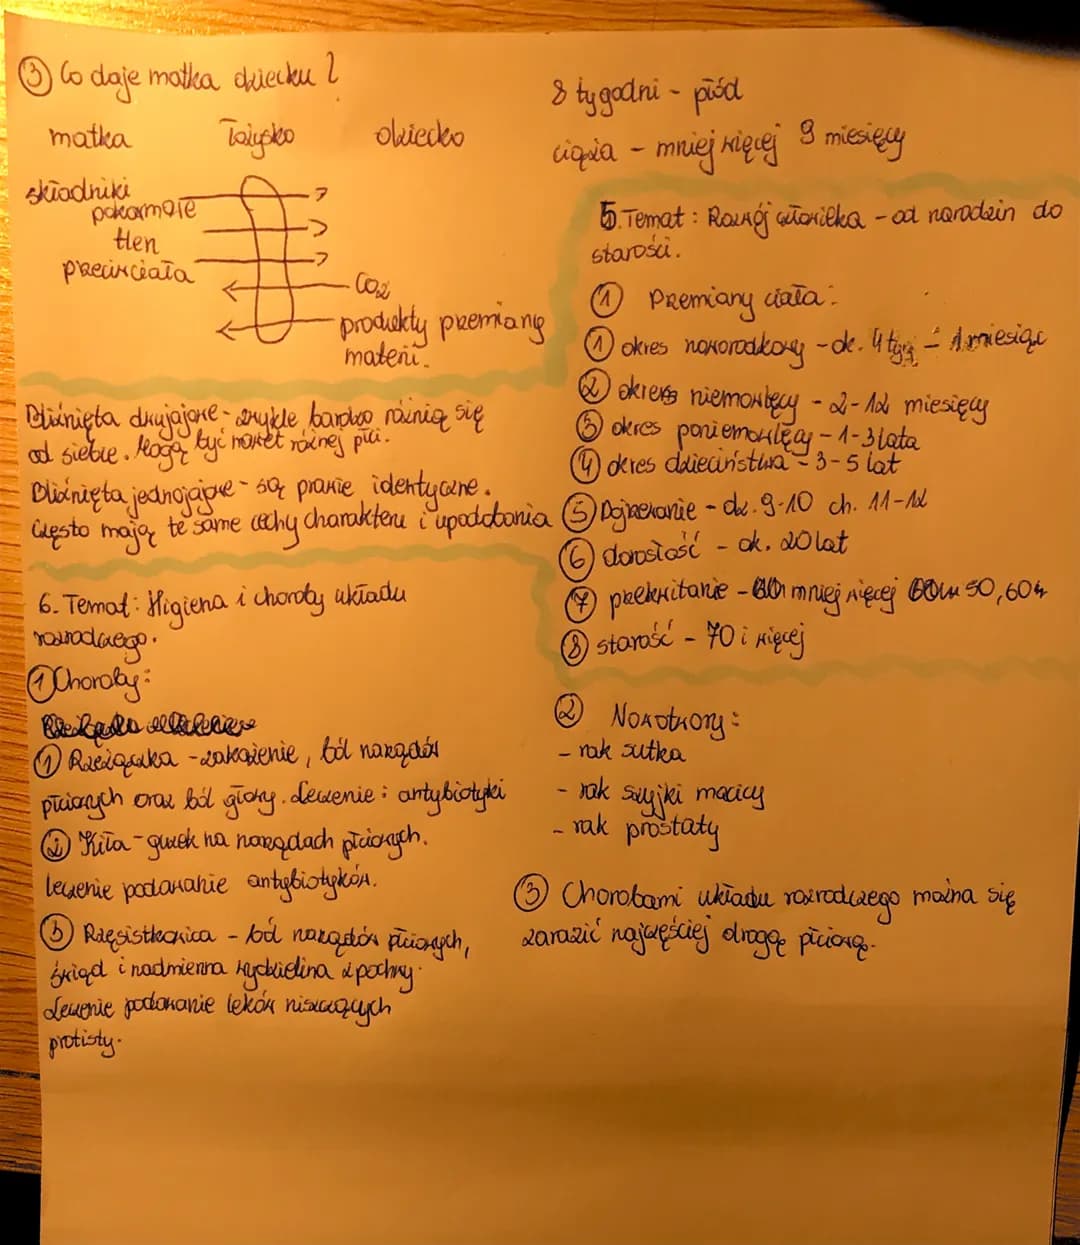 ③ Co daje matka dziecku?
matka łożysko dziecko
składniki
pokarmowe
tlen
przeciwciała
CO2
produkty przemiany
materii.
Bliźnięta dwujajowe - zwykle bardzo różnią się
od siebie. Mogą być nawet różnej płci.
Bliźnięta jednojajowe - są prawie identyczne.
Często mają te same cechy charakteru i upodobania
6. Temat: Higiena i choroby układu
rozrodczego.
① Choroby:
① Rzeżączka - zakażenie, ból narządów
płciowych oraz ból głowy. Leczenie: antybiotyki
② Kiła - guzek na narządach płciowych.
leczenie podawanie antybiotyków.
③ Rzęsistkowica - ból narządów płciowych,
świąd i nadmierna wydzielina z pochwy.
Leczenie podawanie leków niszczących
protisty.
8 tygodni - płód
ciąża - mniej więcej 9 miesięcy
5. Temat: Rozwój człowieka - od narodzin do
starości.
① Przemiany ciała:
① okres noworodkowy - ok. 4 tyg - 1 miesiąc
② okres niemowlęcy - 2-12 miesięcy
③ okres poniemowlęcy - 1-3 lata
④ okres dzieciństwa - 3-5 lat
⑤ Dojrzewanie - dz. 9-10 ch. 11-12
⑥ dorosłość - ok. 20 lat
⑦ przekwitanie - mniej więcej 50, 60
⑧ starość - 70 i więcej
② Nowotwory:
- rak sutka
- rak szyjki macicy
- rak prostaty
③ Chorobami układu rozrodczego można się
zarazić najczęściej drogą płciową.